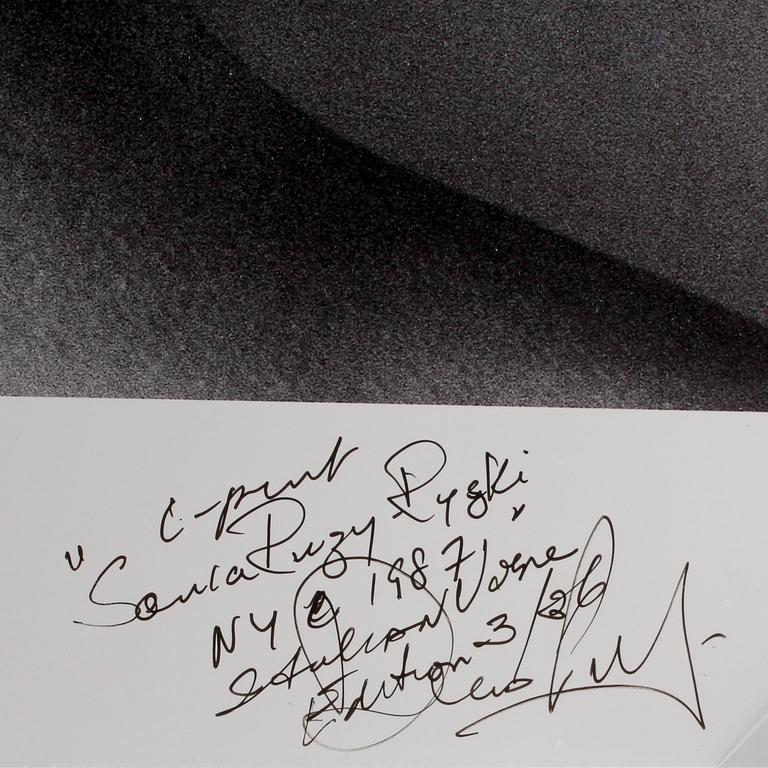 C-print
"Sonia Puzy Ryski
NYC 1987"
Italian Vogue
Edition 3/26